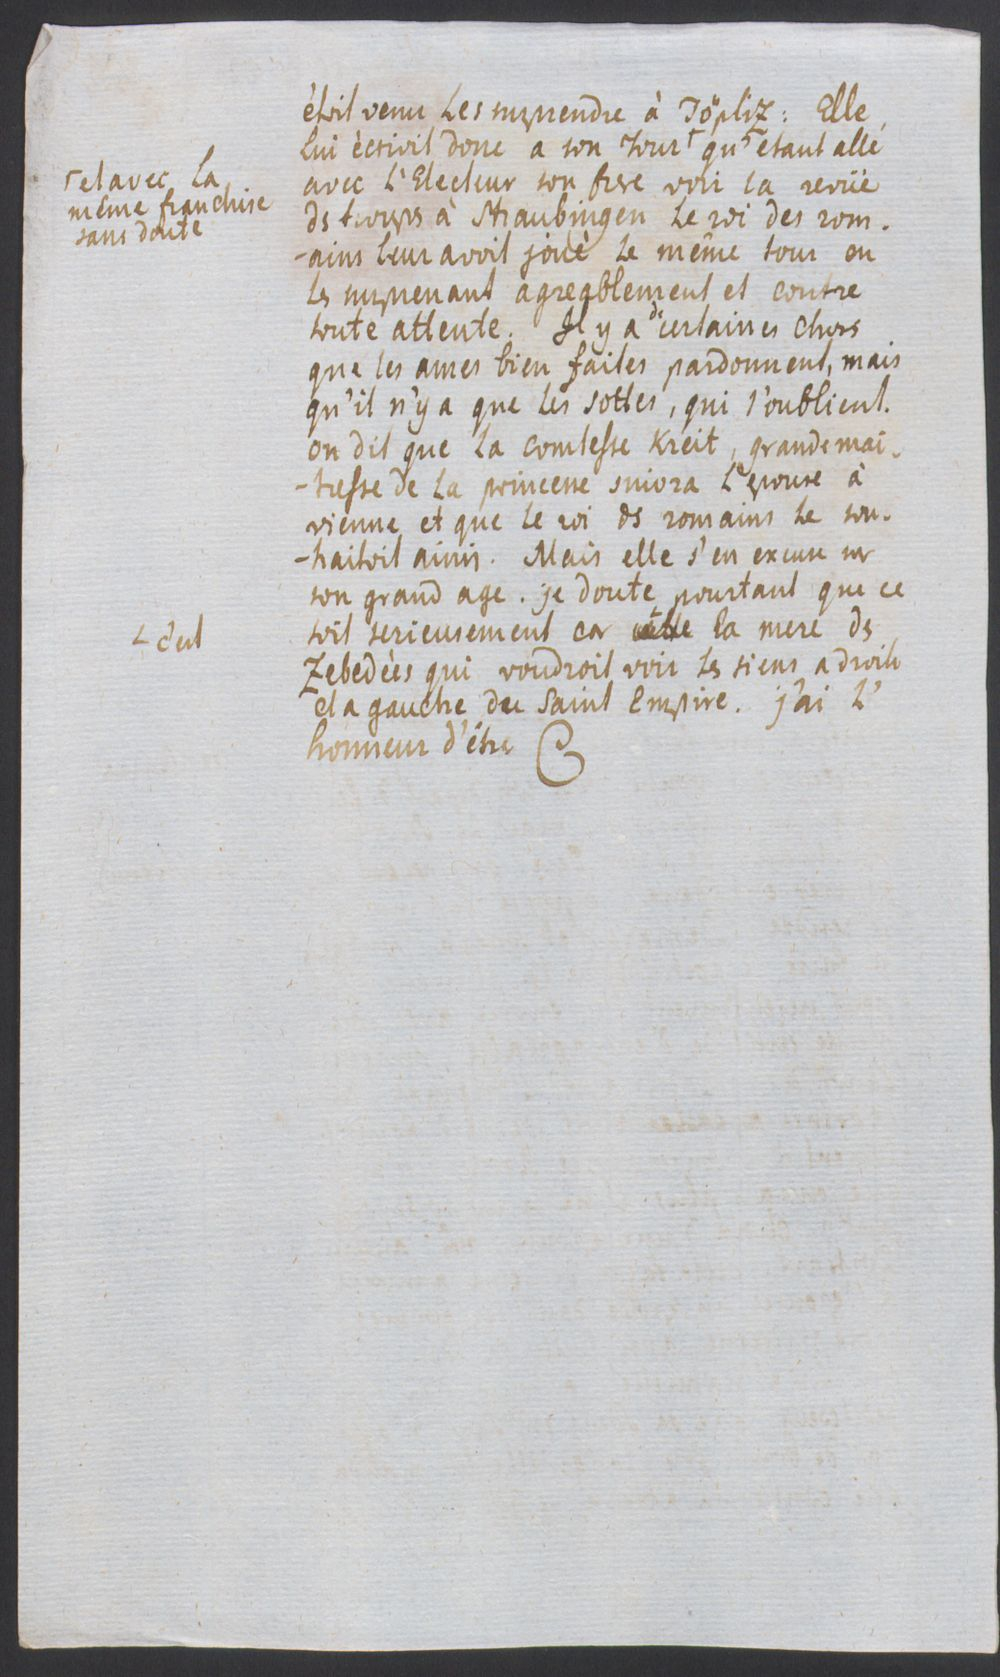 étoit venu les surprendre à Töpliz: Elle
lui écrivit donc a son tour ┌ qu'étant allé
┌ et avec la
même franchise
sans doute
avec l'Electeur son frere voir la revüe
ds troups à Straubingen le roi des rom-
-ains leur avoit joué le même tour en
ls surprenant agreablement et contre
toute attente. Il y a de certaines choses
que les ames bien faites pardonnent, mais
qu'il n'y a que les sottes, qui l'oublient.
on dit que la comtesse Kreit, grande mai-
-tresse de la princesse suivra l'epouse à
vienne et que le roi ds romains le sou-
-haitoit ainsi. Mais elle s'en excuse sur
son grand age. je doute pourtant que ce
soit serieusement car └ la mere ds
└ c'est
Zebedées qui voudroit voir ls siens a droite
et a gauche du Saint Empire. j'ai l'
honneur d'étre